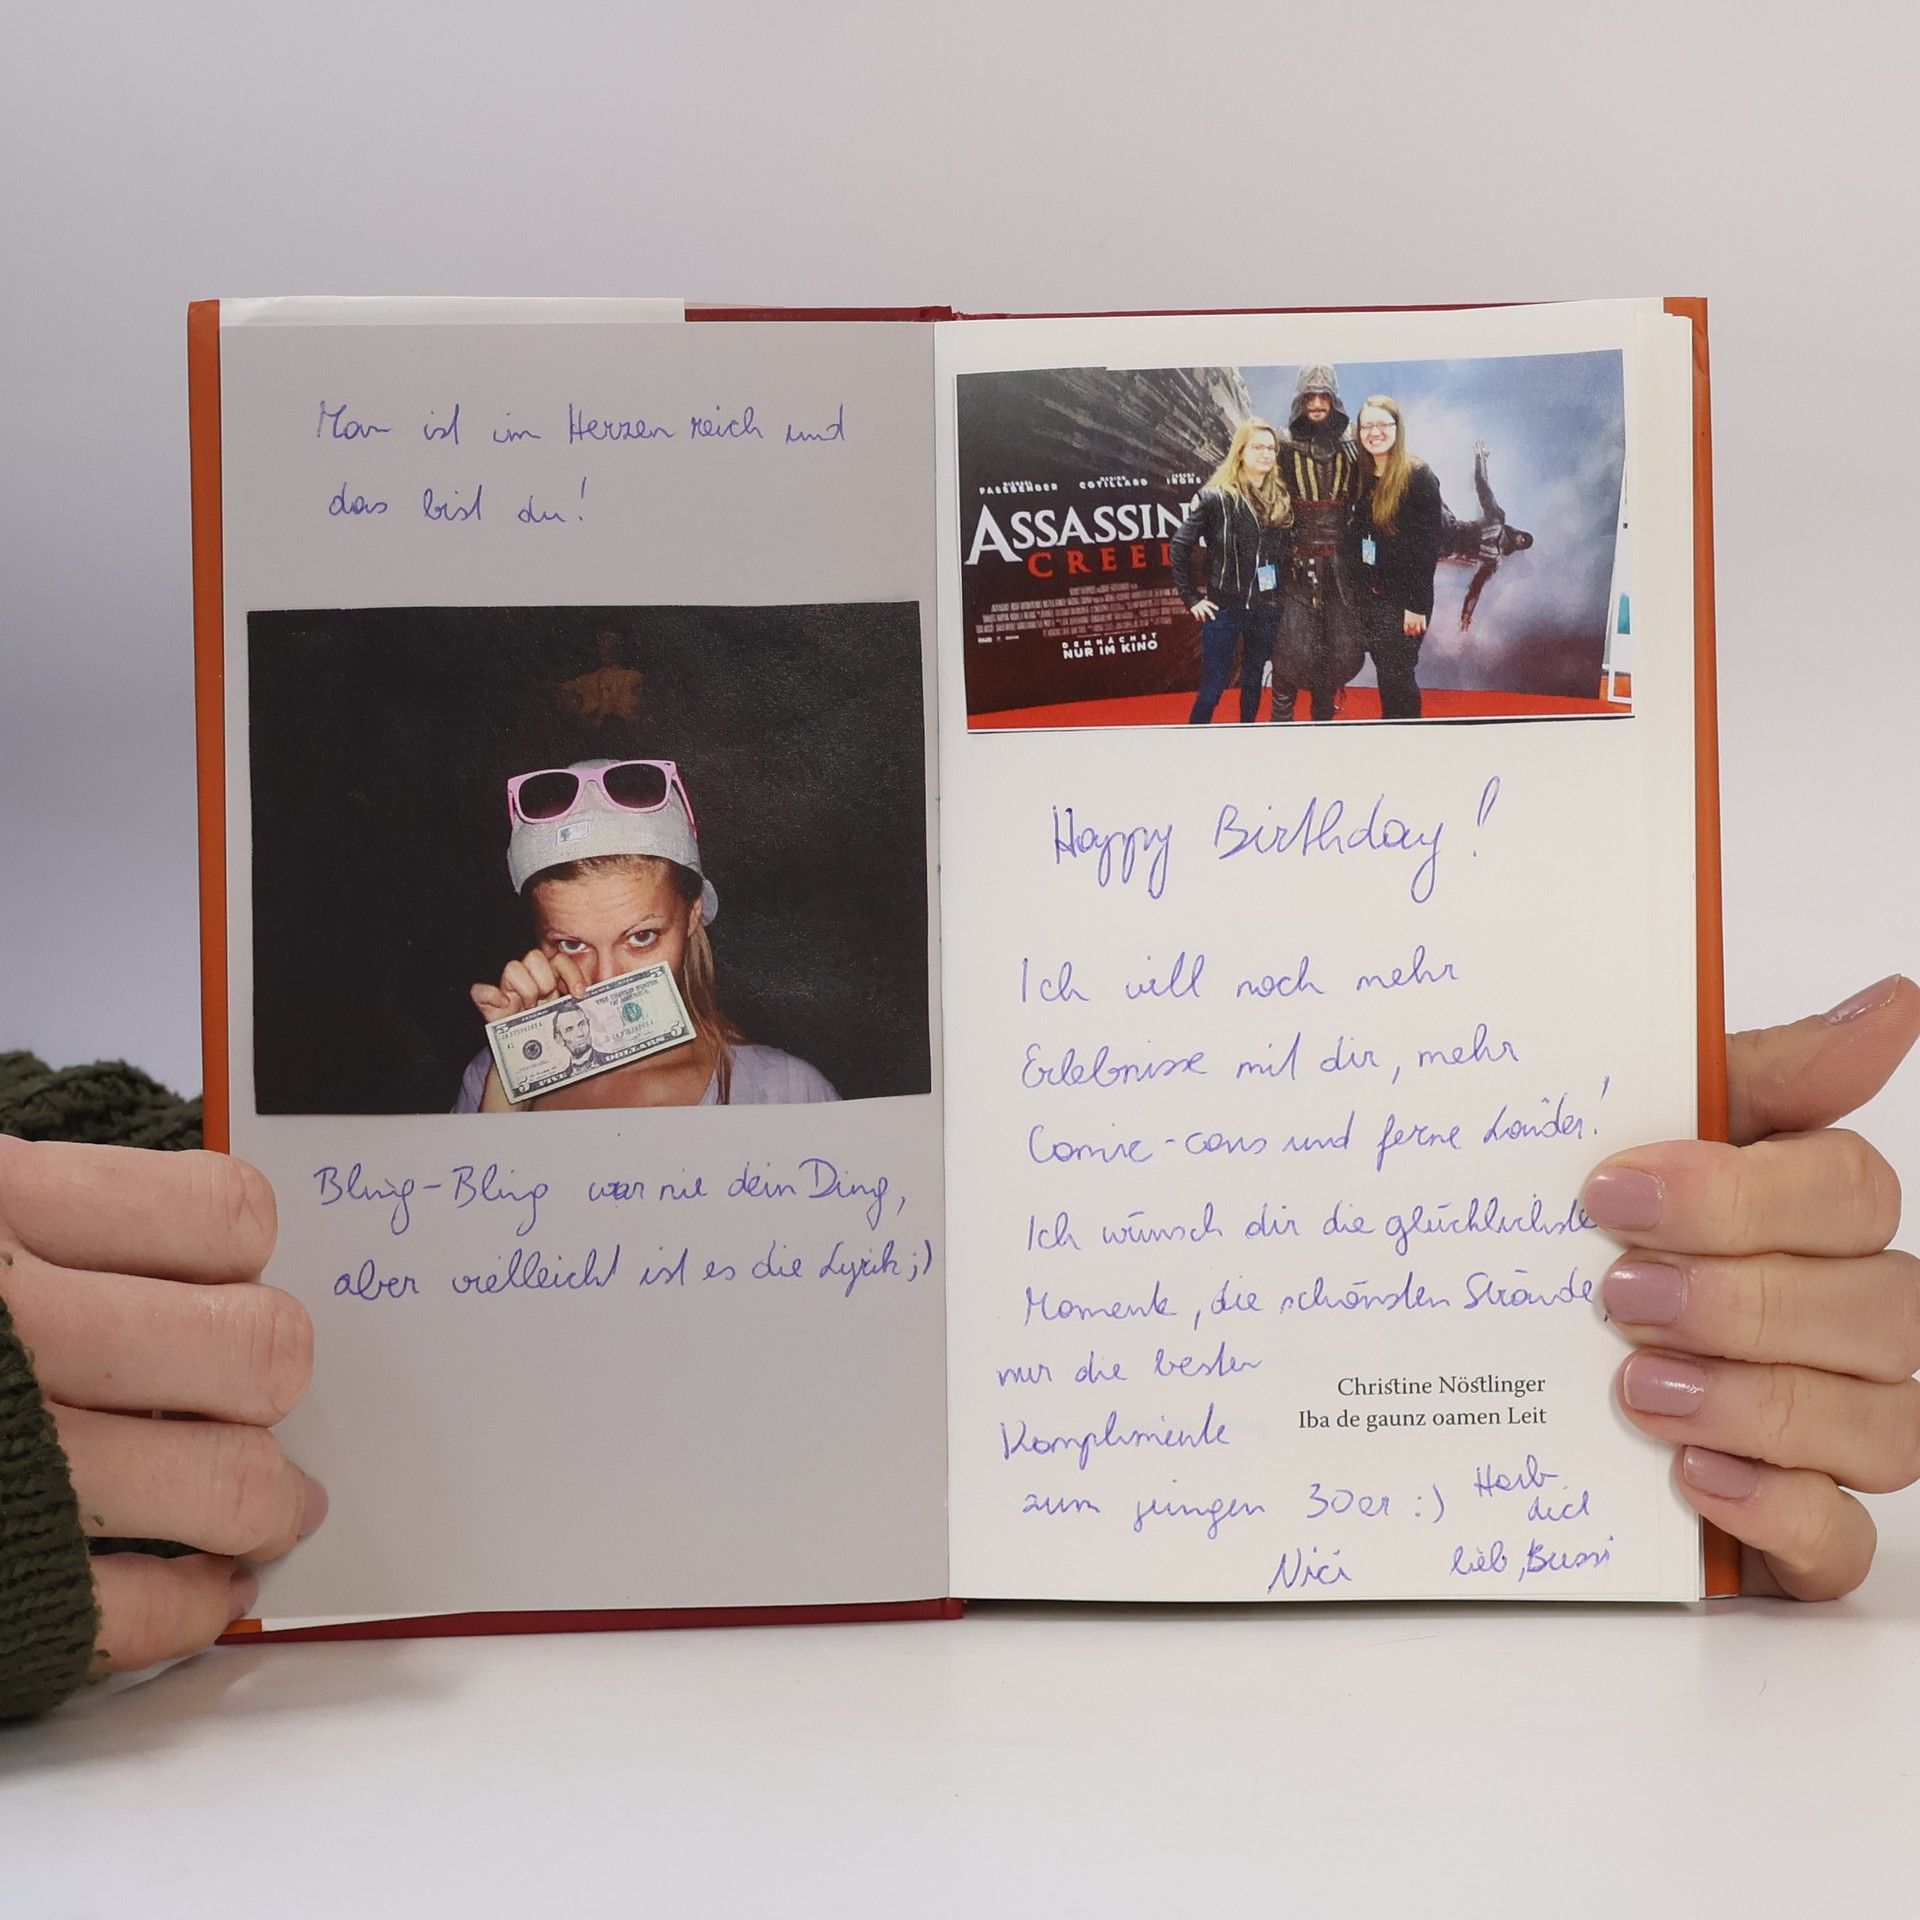 Man ist im Herzen reich und
das bist du!
FIVE DOLLARS
Bling-Bling war nie dein Ding,
aber vielleicht ist es die Lyrik ;)
MICHAEL FASSBENDER
MARION COTILLARD
JEREMY IRONS
ASSASSIN'
CREED
DEMNÄCHST
NUR IM KINO
Happy Birthday!
Ich will noch mehr
Erlebnisse mit dir, mehr
Comic-cons und ferne Länder!
Ich wünsch dir die glücklichste
Momente, die schönsten Strände,
nur die besten
Komplimente
zum jungen 30er :)
Christine Nöstlinger
Iba de gaunz oamen Leit
Hab
dich
lieb, Bussi
Nici